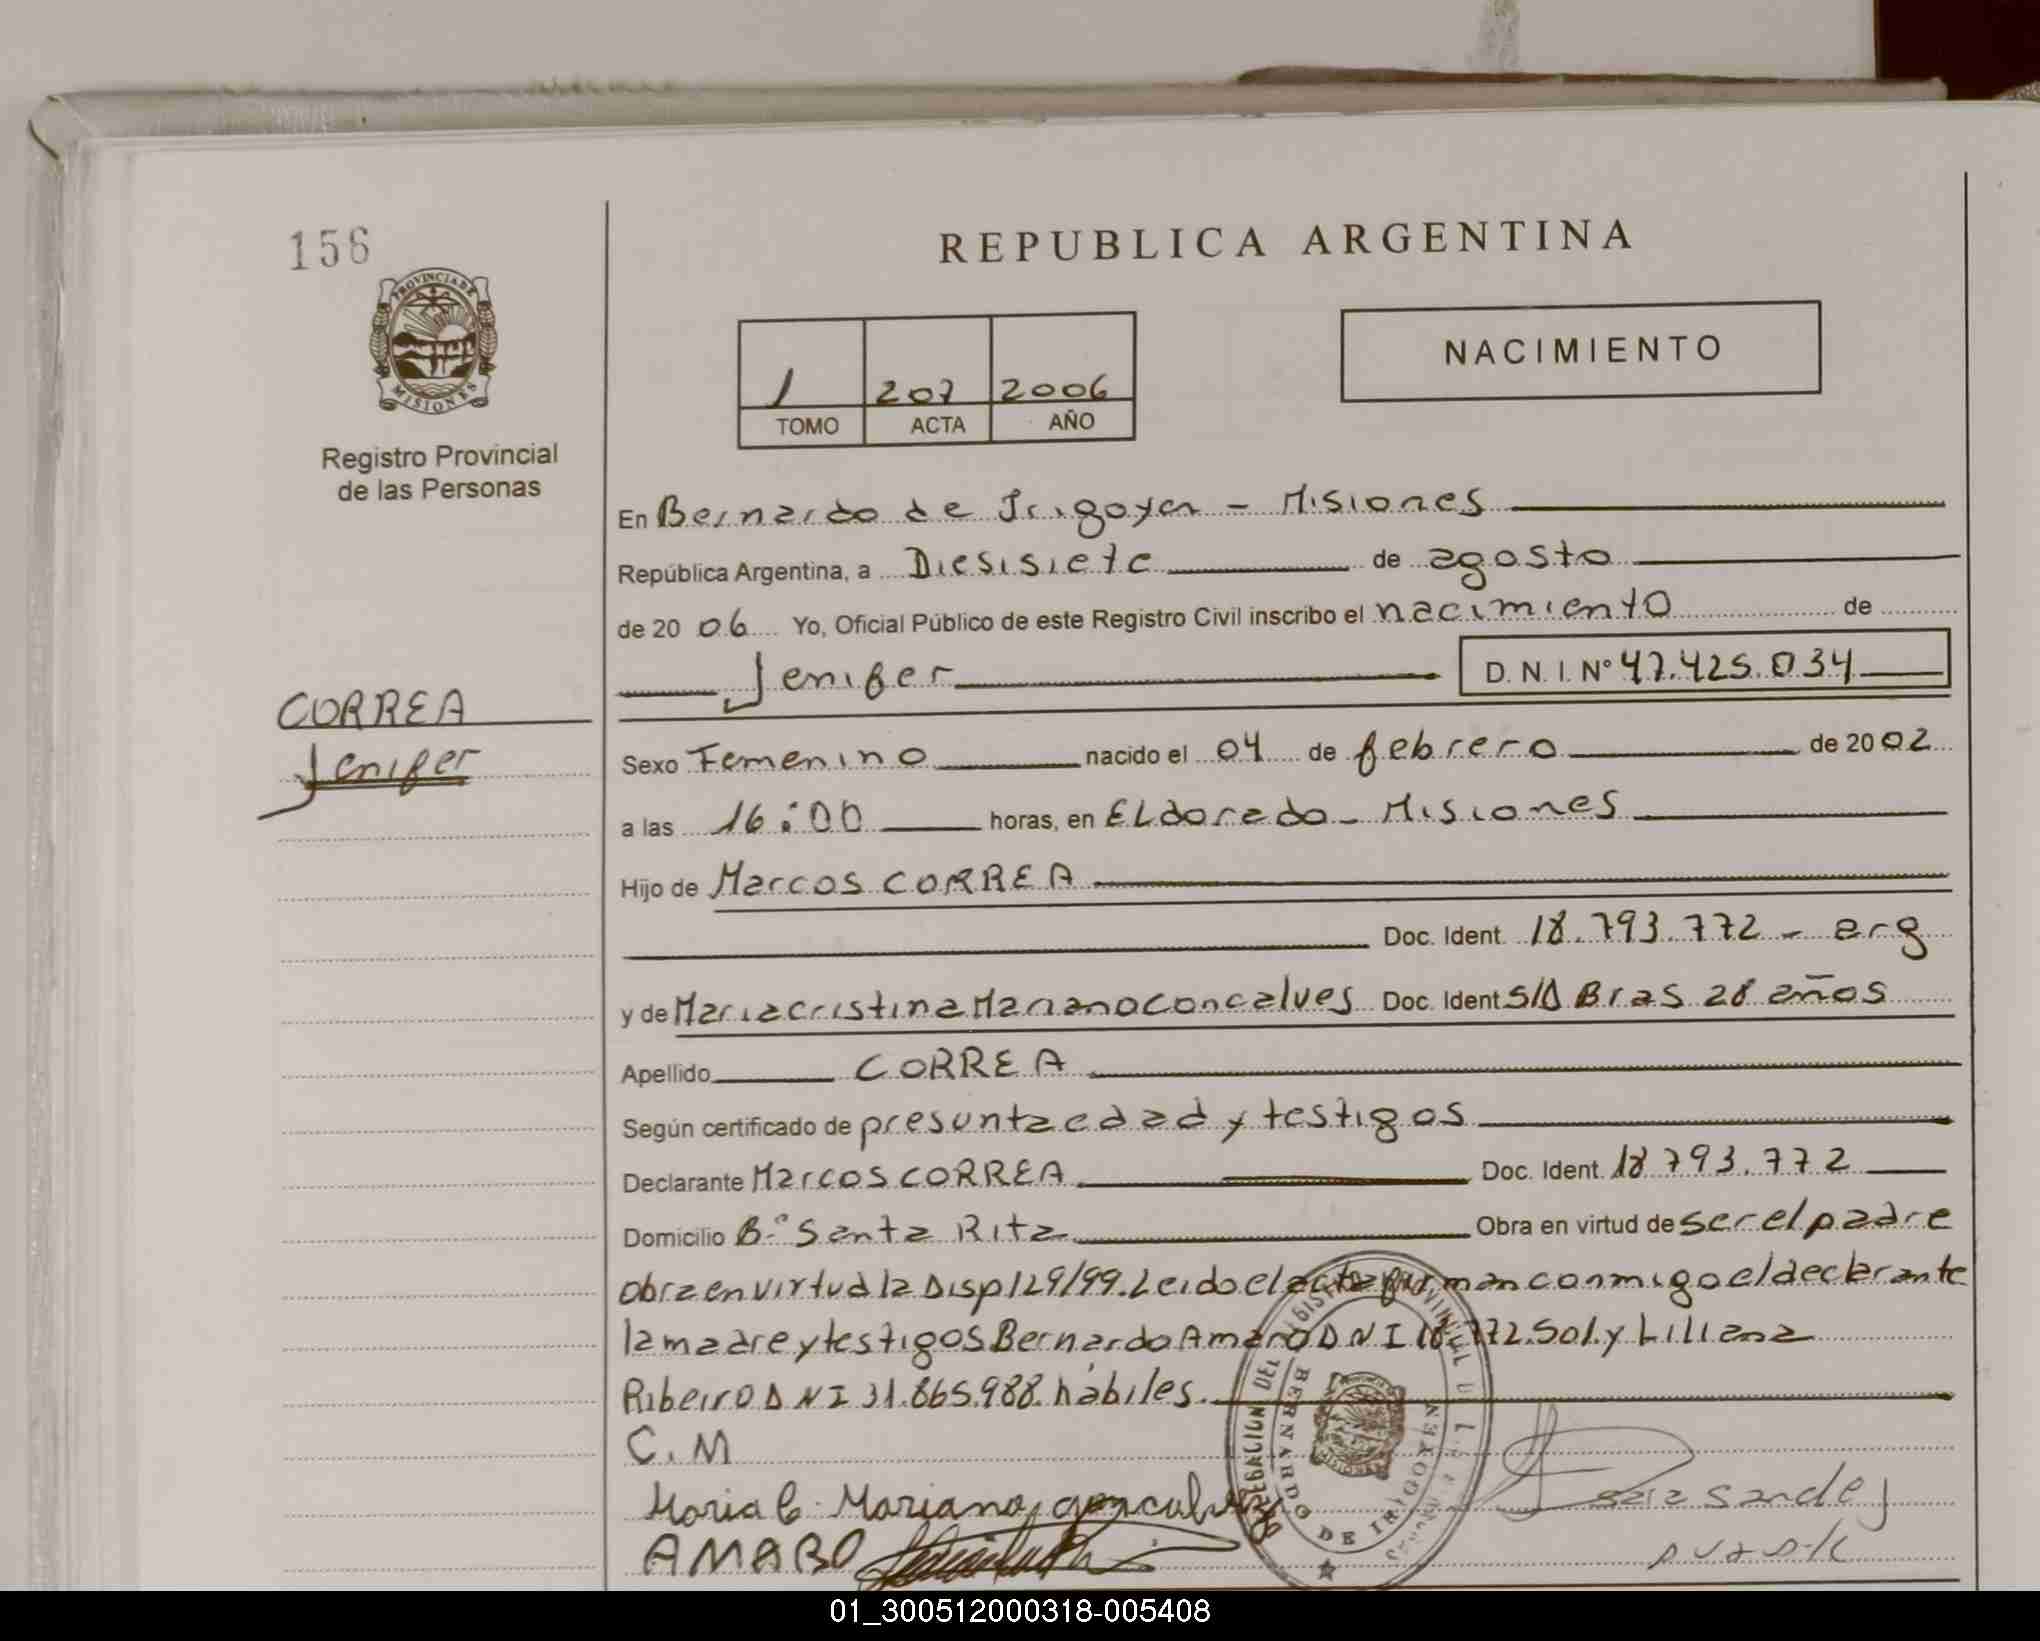 156
PROVINCIA DE
MISIONES
Registro Provincial
de las Personas
CORREA
Jenifer
REPUBLICA ARGENTINA
1 207 2006
TOMO ACTA AÑO
NACIMIENTO
En Bernardo de Irigoyen - Misiones
República Argentina, a Diesisiete de agosto
de 2006 Yo, Oficial Público de este Registro Civil inscribo el nacimiento de
Jenifer D.N.I. Nº 47.425.034
Sexo Femenino nacido el 04 de febrero de 2002
a las 16:00 horas, en ELdorado - Misiones
Hijo de Marcos CORREA
Doc. Ident. 18.793.772 - arg
y de Maria cristina Mariano concalves Doc. Ident S/D Bras 28 años
Apellido CORREA
Según certificado de presunta edad y testigos
Declarante Marcos CORREA Doc. Ident. 18 793.772
Domicilio Bº Santa Rita Obra en virtud de ser el padre
obra en virtud la Disp 129/99. Leido el acta firman conmigo el declarante
la madre y testigos Bernardo Amaro DNI 18.772.501. y Liliana
Ribeiro DNI 31.865.988. hábiles.
C.M
Maria C. Mariano goncalves
AMARO
DELEGACION DEL REGISTRO PROVINCIAL
BERNARDO DE IRIGOYEN
01_300512000318-005408